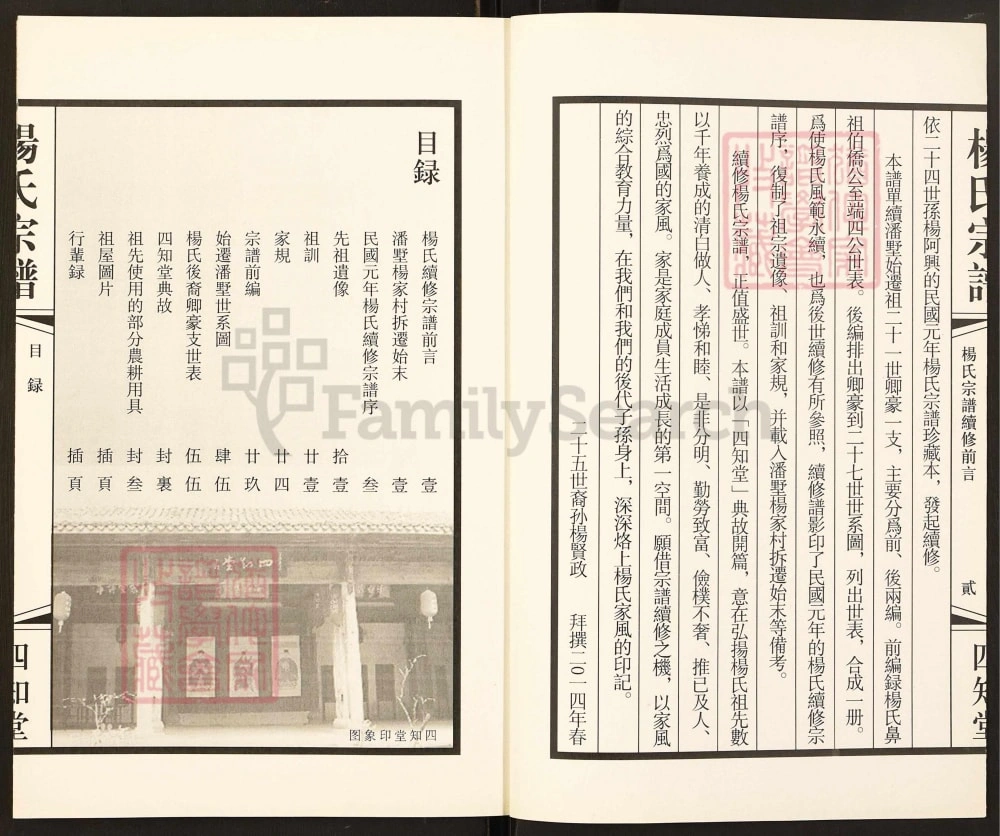 楊氏宗譜
楊氏宗譜續修前言
貳
四知堂
依二十四世孫楊阿興的民國元年楊氏宗譜珍藏本，發起續修。
本譜單續潘墅始遷祖二十一世卿豪一支，主要分爲前、後兩編。前編録楊氏鼻
祖伯僑公至端四公世表。後編排出卿豪到二十七世世系圖，列出世表，合成一册。
爲使楊氏風範永續，也爲後世續修有所參照，續修譜影印了民國元年的楊氏續修宗
譜序，復制了祖宗遺像、祖訓和家規，并載入潘墅楊家村拆遷始末等備考。
續修楊氏宗譜，正值盛世。本譜以「四知堂」典故開篇，意在弘揚楊氏祖先數
以千年養成的清白做人、孝悌和睦、是非分明、勤勞致富、儉樸不奢、推已及人、
忠烈爲國的家風。家是家庭成員生活成長的第一空間。願借宗譜續修之機，以家風
的綜合教育力量，在我們和我們的後代子孫身上，深深烙上楊氏家風的印記。
二十五世裔孙楊賢政 拜撰二0一四年春
目録
楊氏續修宗譜前言 壹
潘墅楊家村拆遷始末 壹
民國元年楊氏續修宗譜序 叁
先祖遺像 拾壹
祖訓 廿壹
家規 廿四
宗譜前編 廿玖
始遷潘墅世系圖 肆伍
楊氏後裔卿豪支世表 伍伍
四知堂典故 封裏
祖先使用的部分農耕用具 封叁
祖屋圖片 插頁
行輩録 插頁
四知堂
圖象印堂知四
楊氏宗譜
目録
四知堂
FamilySearch